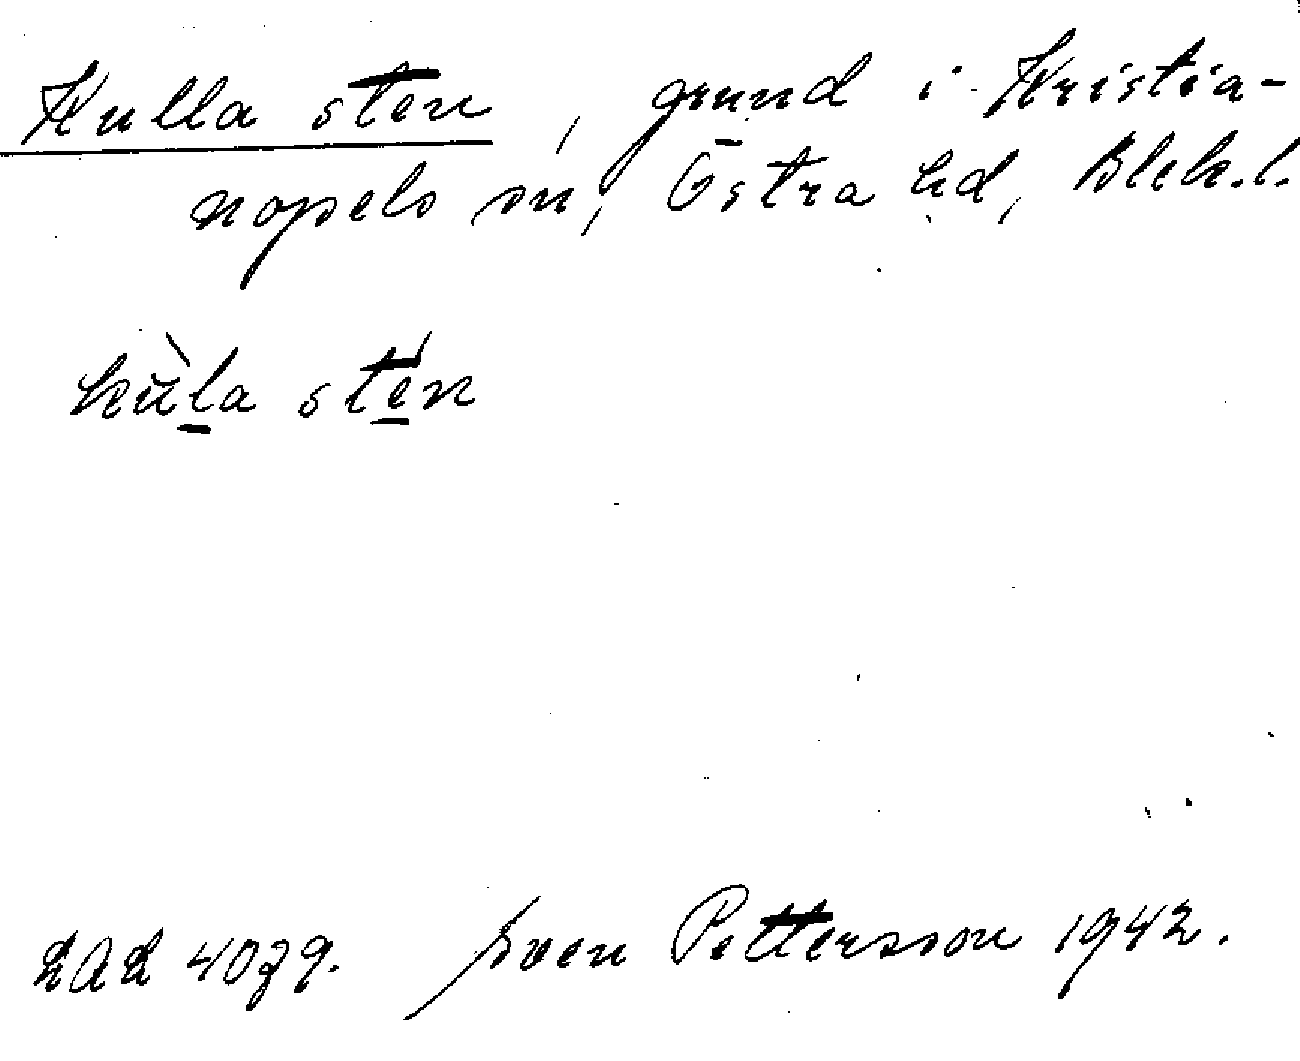 Kulla sten, grund i Kristia-
nopels sn, Östra hd, Blek.l.
kùla stén
LAL 4079. Sven Pettersson 1942.